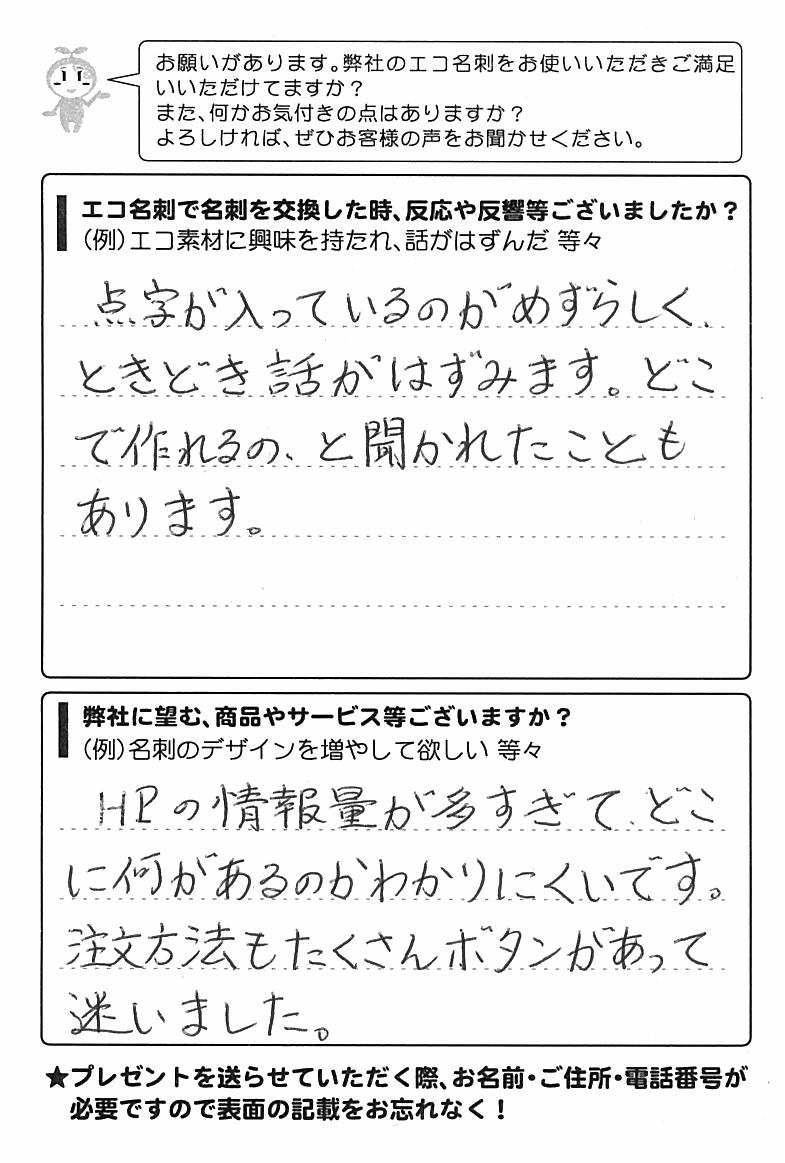 お願いがあります。弊社のエコ名刺をお使いいただきご満足
いいただけてますか？
また、何かお気付きの点はありますか？
よろしければ、ぜひお客様の声をお聞かせください。
エコ名刺で名刺を交換した時、反応や反響等ございましたか？
（例）エコ素材に興味を持たれ、話がはずんだ 等々
点字が入っているのがめずらしく、
ときどき話がはずみます。どこ
で作れるの、と聞かれたことも
あります。
弊社に望む、商品やサービス等ございますか？
（例）名刺のデザインを増やして欲しい 等々
HPの情報量が多すぎて、どこ
に何があるのかわかりにくいです。
注文方法もたくさんボタンがあって
迷いました。
★プレゼントを送らせていただく際、お名前・ご住所・電話番号が
必要ですので表面の記載をお忘れなく！